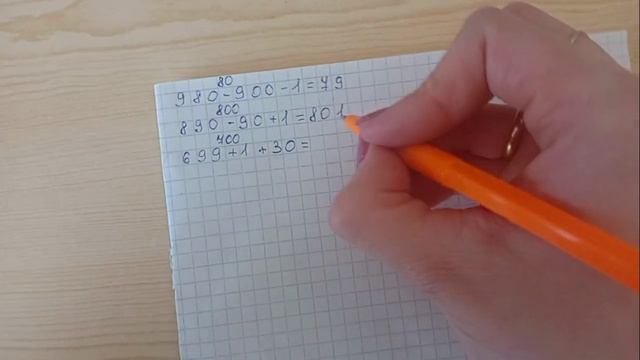 80
980-900-1=79
800
890-90+1=801
700
699+1+30=